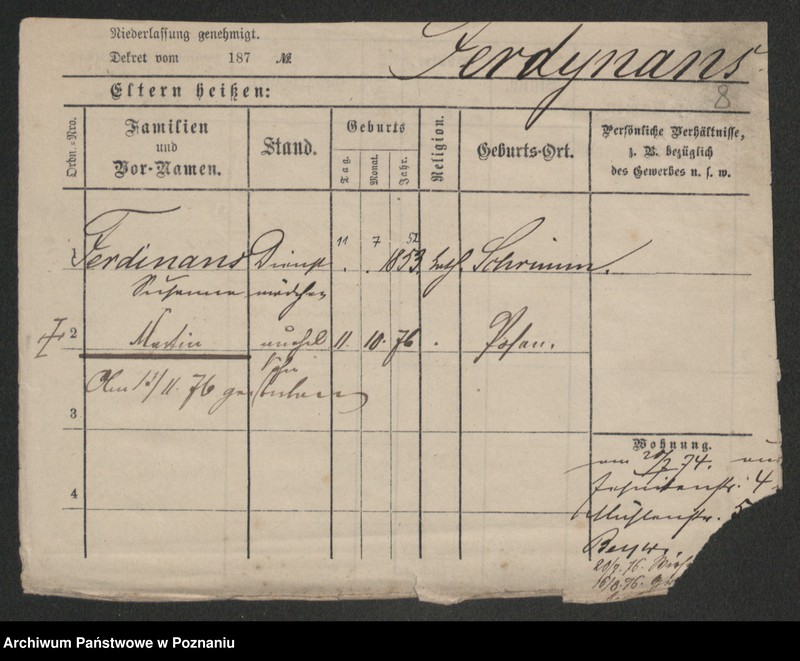 Niederlassung genehmigt.
Dekret vom 187 №
Ferdynans
8
Eltern heißen:
Ordn.=Nro.
Familien und Vor-Namen.
Stand.
Geburts
Tag.
Monat.
Jahr.
Religion.
Geburts-Ort.
Persönliche Verhältnisse,
z. B. bezüglich
des Gewerbes u. s. w.
11 7 52
1 Ferdinans Dienst . . 1853. kath. Schrimm.
Susanna mädchen
2 Martin 11. 10. 76 . Posen.
Am 13/11. 76 gestorben
3
4
Wohnung.
74.
Jesuitenstr. 4
Mühlenstr. 5
20/7. 76.
16/8. 76.
Archiwum Państwowe w Poznaniu